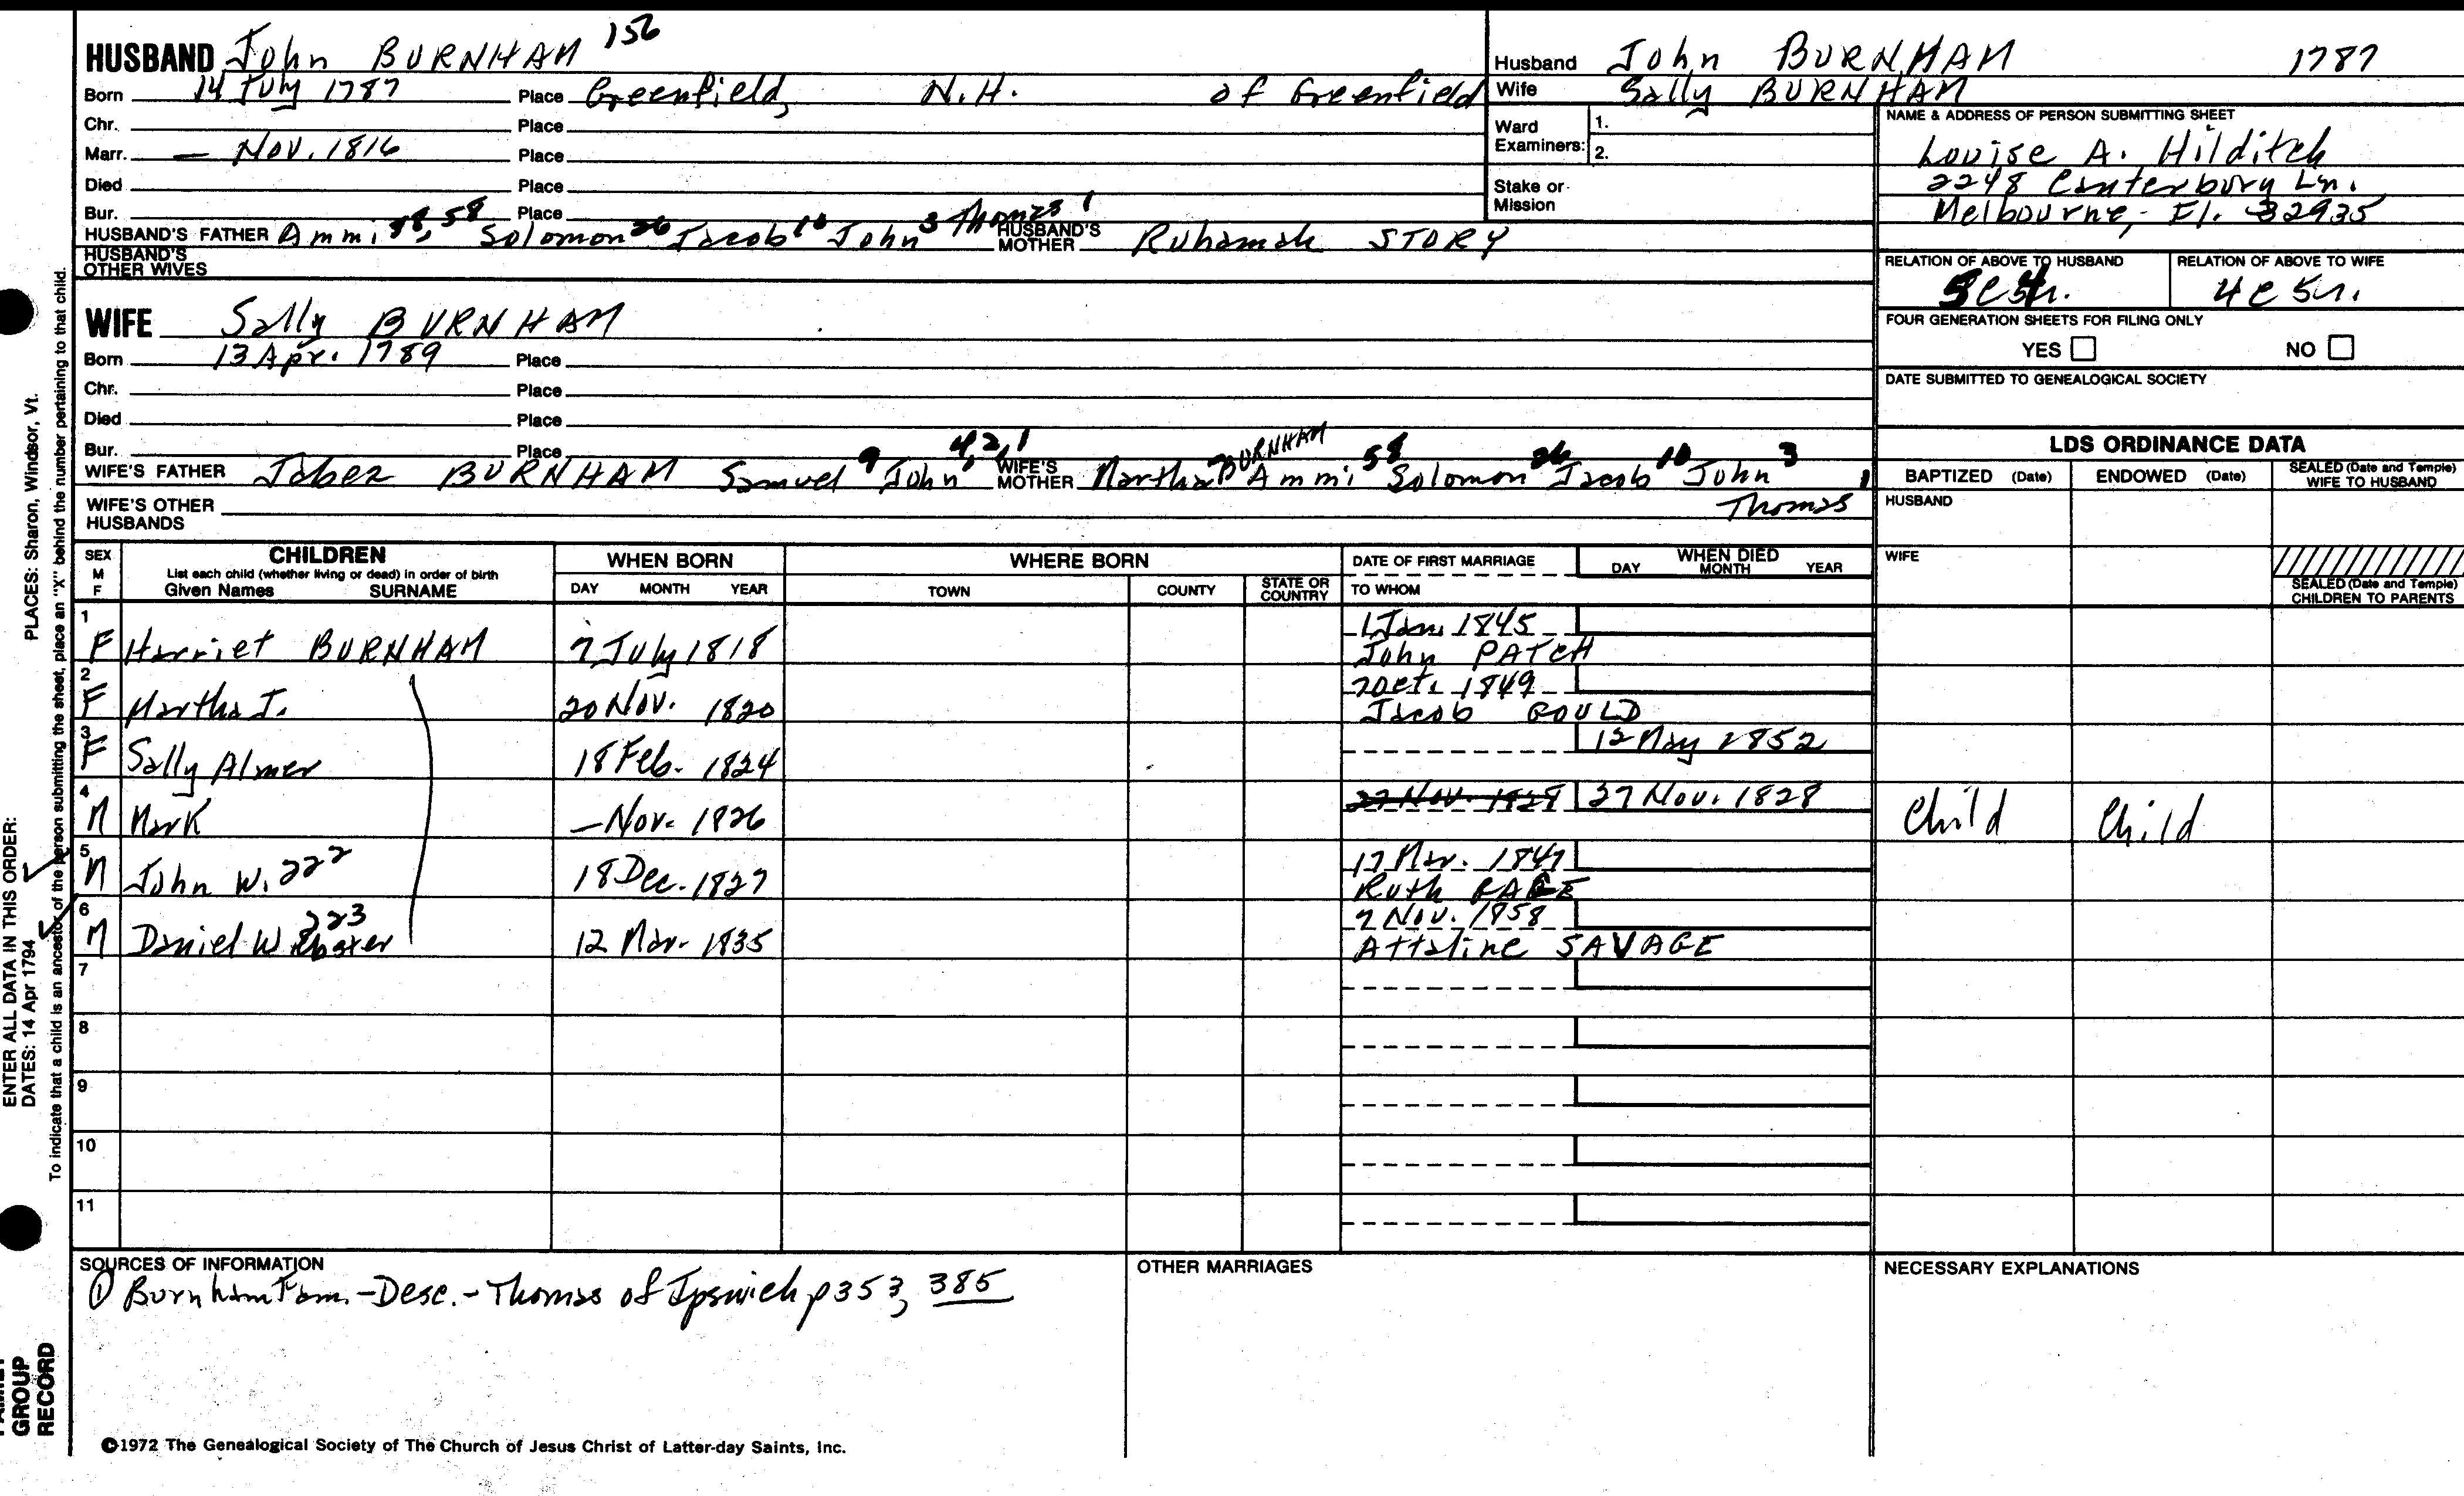 HUSBAND John BURNHAM 156
Born 14 July 1787 Place Greenfield, N.H. of Greenfield
Chr. Place
Marr. — Nov. 1816 Place
Died Place
Bur. Place
HUSBAND'S FATHER Ammi 58, Solomon 26 Jacob 10 John 3 Thomas 1 HUSBAND'S MOTHER Ruhamah STORY
HUSBAND'S OTHER WIVES
WIFE Sally BURNHAM
Born 13 Apr. 1789 Place
Chr. Place
Died Place
Bur. Place
WIFE'S FATHER Jabez BURNHAM Samuel 9 John 4,2,1 WIFE'S MOTHER Martha BURNHAM Ammi 58 Solomon 26 Jacob 10 John 3 Thomas 1
WIFE'S OTHER HUSBANDS
Husband John BURNHAM 1787
Wife Sally BURNHAM
Ward Examiners: 1.
2.
Stake or Mission
NAME & ADDRESS OF PERSON SUBMITTING SHEET
Louise A. Hilditch
2248 Canterbury Ln.
Melbourne, Fl. 32935
RELATION OF ABOVE TO HUSBAND RELATION OF ABOVE TO WIFE
4c5r.
FOUR GENERATION SHEETS FOR FILING ONLY
YES NO
DATE SUBMITTED TO GENEALOGICAL SOCIETY
LDS ORDINANCE DATA
BAPTIZED (Date) ENDOWED (Date) SEALED (Date and Temple) WIFE TO HUSBAND
HUSBAND
WIFE
SEALED (Date and Temple) CHILDREN TO PARENTS
SEX M F
CHILDREN
List each child (whether living or dead) in order of birth
Given Names SURNAME
WHEN BORN
DAY MONTH YEAR
WHERE BORN
TOWN COUNTY STATE OR COUNTRY
DATE OF FIRST MARRIAGE
TO WHOM
WHEN DIED
DAY MONTH YEAR
1 F Harriet BURNHAM 7 July 1818 1 Jan. 1845
John PATCH
2 F Martha J. 20 Nov. 1820 7 Oct. 1849
Jacob GOULD
3 F Sally Almer 18 Feb. 1824 12 May 1852
4 M Mark — Nov. 1826 27 Nov. 1828 27 Nov. 1828 Child Child
5 M John W. 222 18 Dec. 1827 17 Mar. 1847
Ruth PAGE
6 M Daniel Webster 223 12 Mar. 1835 7 Nov. 1858
Attaline SAVAGE
7
8
9
10
11
SOURCES OF INFORMATION
① Burnham Fam. - Desc. - Thomas of Ipswich p 353, 385
OTHER MARRIAGES
NECESSARY EXPLANATIONS
©1972 The Genealogical Society of The Church of Jesus Christ of Latter-day Saints, Inc.
PLACES: Sharon, Windsor, Vt.
ENTER ALL DATA IN THIS ORDER:
DATES: 14 Apr 1794
To indicate that a child is an ancestor of the person submitting the sheet, place an "X" behind the number pertaining to that child.
GROUP
RECORD